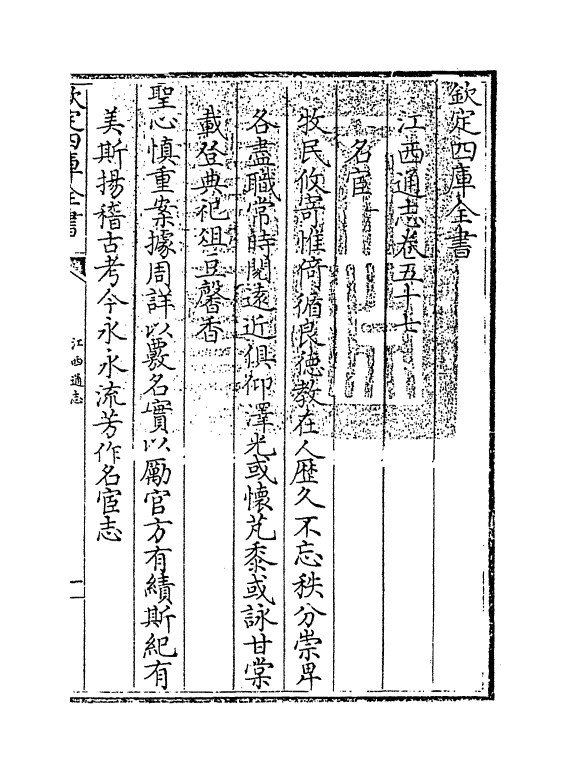 欽定四庫全書
江西通志卷五十七
名宦
牧民攸寄惟倚循良徳教在人歴久不忘秩分崇卑
各盡職常時閲遠近俱仰澤光或懐芃黍或詠甘棠
載登典祀俎豆馨香
聖心慎重案據周詳以覈名實以勵官方有績斯紀有
美斯揚稽古考今永永流芳作名宦志
欽定四庫全書
江西通志
一